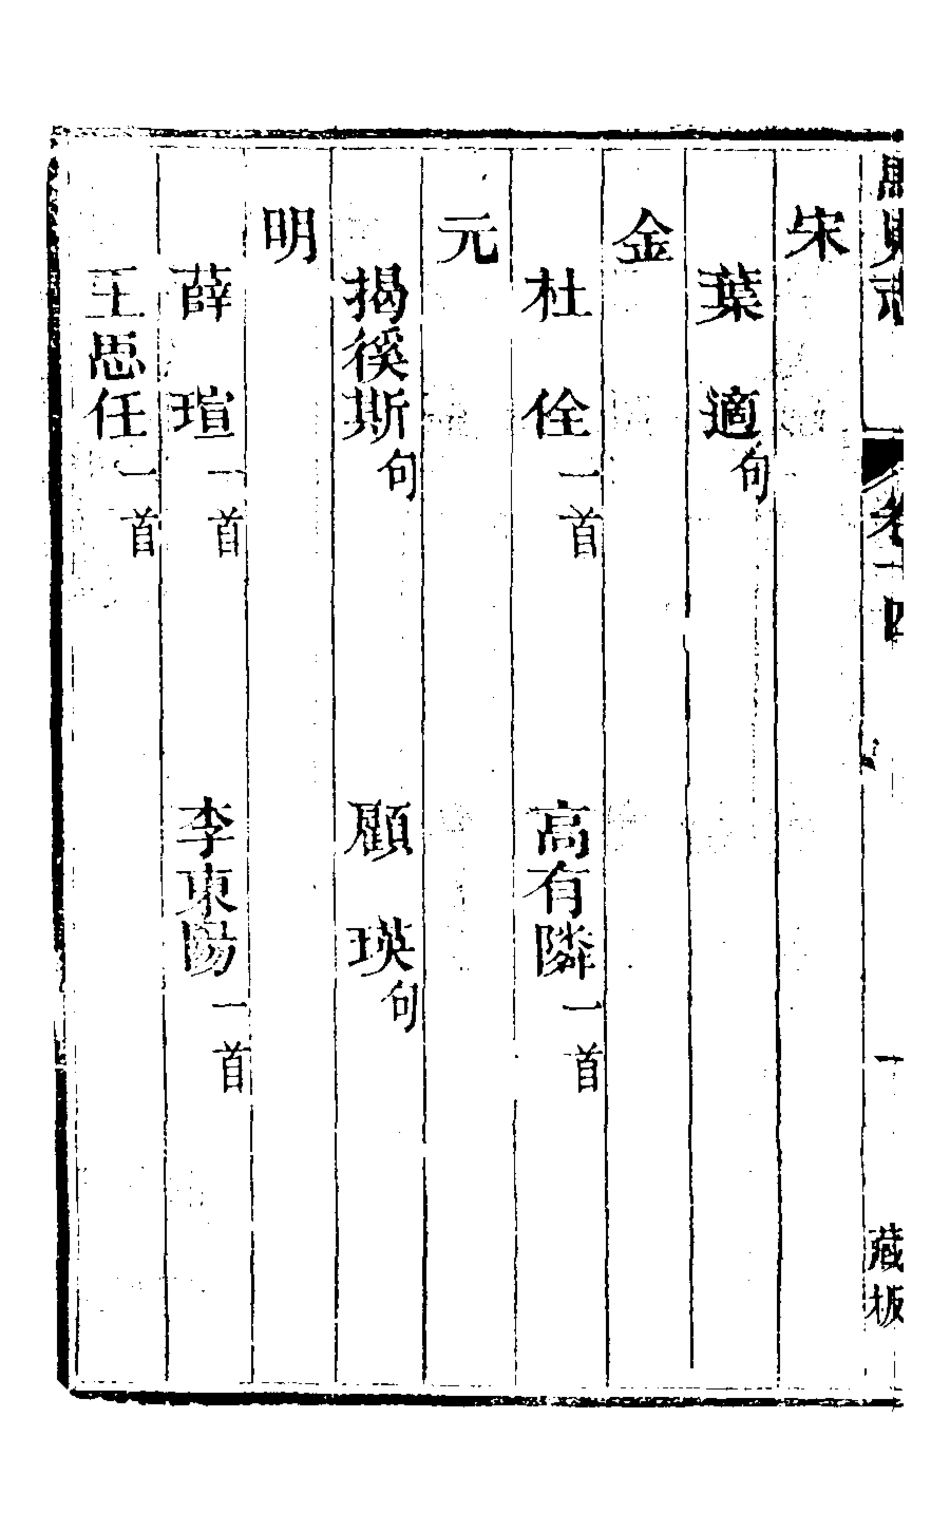 宋
葉適句
金
杜佺一首 高有隣一首
元
揭徯斯句 顧瑛句
明
薛瑄一首 李東陽一首
王思任一首
卷十四
一
藏板